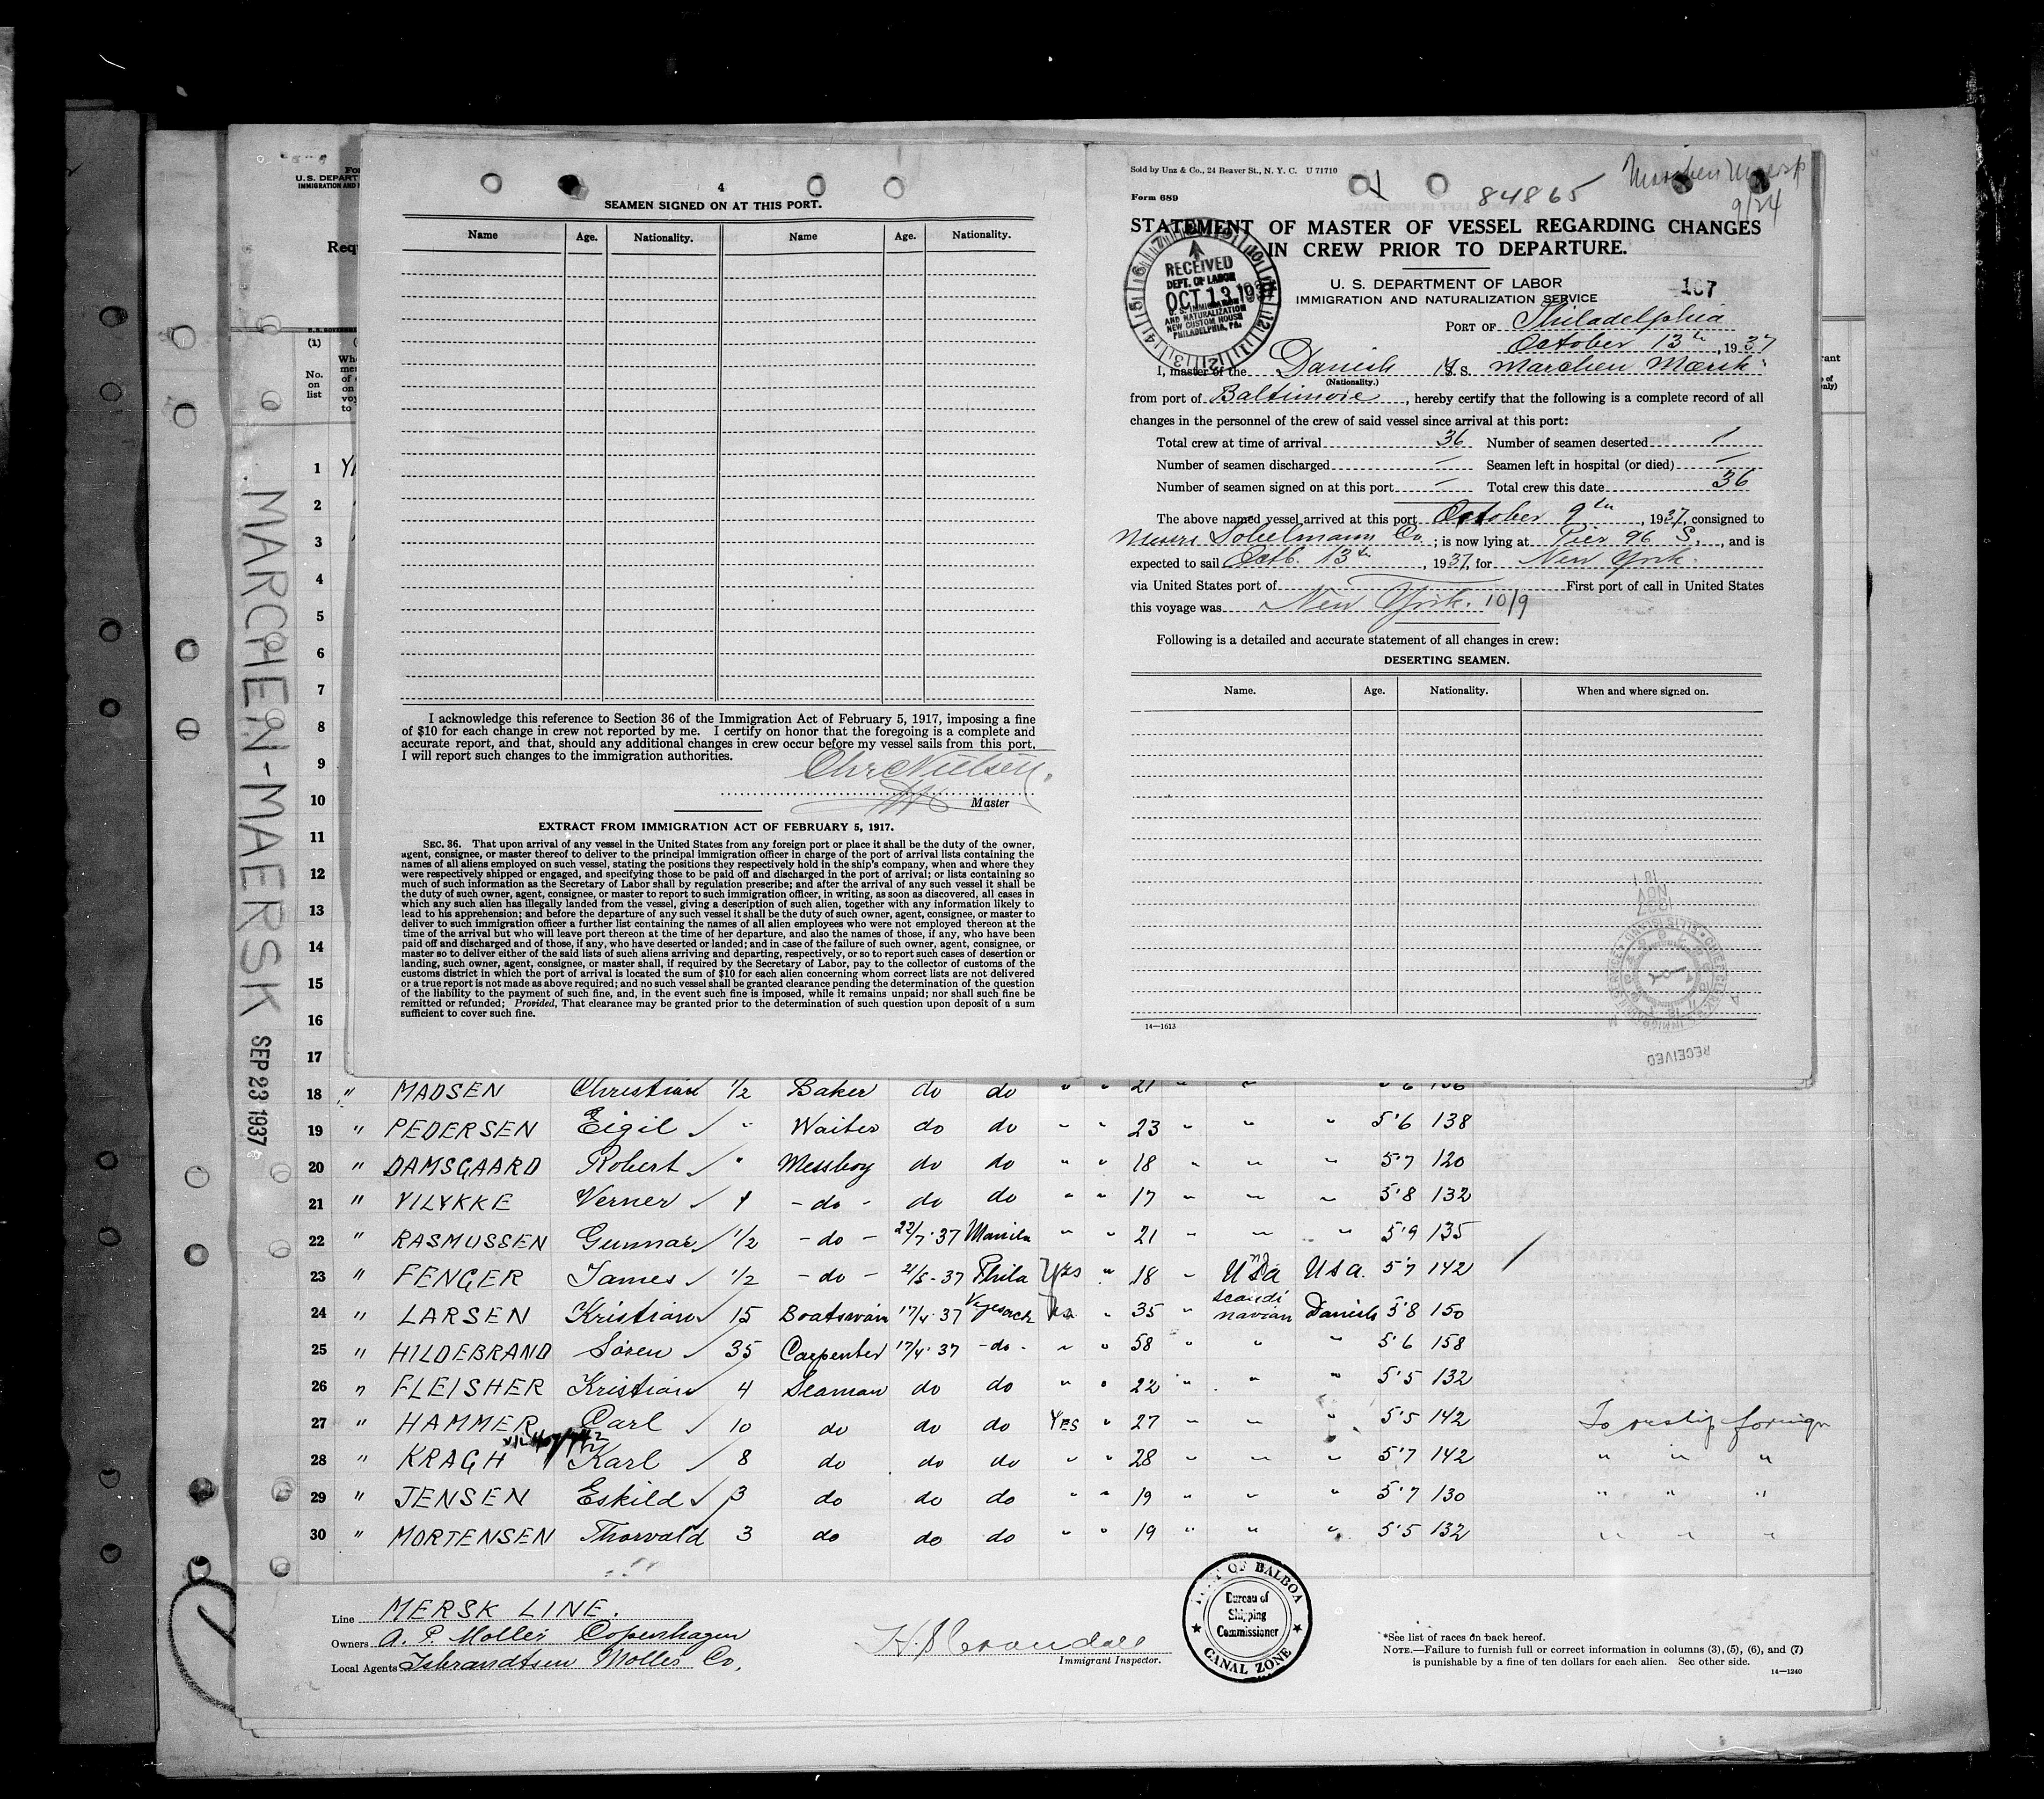 4
SEAMEN SIGNED ON AT THIS PORT.
Name Age. Nationality. Name Age. Nationality.
I acknowledge this reference to Section 36 of the Immigration Act of February 5, 1917, imposing a fine
of $10 for each change in crew not reported by me. I certify on honor that the foregoing is a complete and
accurate report, and that, should any additional changes in crew occur before my vessel sails from this port,
I will report such changes to the immigration authorities.
Chr Nielsen.
Master
EXTRACT FROM IMMIGRATION ACT OF FEBRUARY 5, 1917.
SEC. 36. That upon arrival of any vessel in the United States from any foreign port or place it shall be the duty of the owner,
agent, consignee, or master thereof to deliver to the principal immigration officer in charge of the port of arrival lists containing the
names of all aliens employed on such vessel, stating the positions they respectively hold in the ship's company, when and where they
were respectively shipped or engaged, and specifying those to be paid off and discharged in the port of arrival; or lists containing so
much of such information as the Secretary of Labor shall by regulation prescribe; and after the arrival of any such vessel it shall be
the duty of such owner, agent, consignee, or master to report to such immigration officer, in writing, as soon as discovered, all cases in
which any such alien has illegally landed from the vessel, giving a description of such alien, together with any information likely to
lead to his apprehension; and before the departure of any such vessel it shall be the duty of such owner, agent, consignee, or master to
deliver to such immigration officer a further list containing the names of all alien employees who were not employed thereon at the
time of the arrival but who will leave port thereon at the time of her departure, and also the names of those, if any, who have been
paid off and discharged and of those, if any, who have deserted or landed; and in case of the failure of such owner, agent, consignee, or
master so to deliver either of the said lists of such aliens arriving and departing, respectively, or so to report such cases of desertion or
landing, such owner, agent, consignee, or master shall, if required by the Secretary of Labor, pay to the collector of customs of the
customs district in which the port of arrival is located the sum of $10 for each alien concerning whom correct lists are not delivered
or a true report is not made as above required; and no such vessel shall be granted clearance pending the determination of the question
of the liability to the payment of such fine, and, in the event such fine is imposed, while it remains unpaid; nor shall such fine be
remitted or refunded; Provided, That clearance may be granted prior to the determination of such question upon deposit of a sum
sufficient to cover such fine.
Sold by Unz & Co., 24 Beaver St., N. Y. C. U 71710
Form 689
84865
9/24
STATEMENT OF MASTER OF VESSEL REGARDING CHANGES
IN CREW PRIOR TO DEPARTURE.
RECEIVED
DEPT. OF LABOR
OCT 13 193
U. S. IMMIGRATION
AND NATURALIZATION
NEW CUSTOM HOUSE
PHILADELPHIA, PA.
U. S. DEPARTMENT OF LABOR
IMMIGRATION AND NATURALIZATION SERVICE
167
PORT OF Philadelphia
October 13th, 1937
I, master of the Danish M S. Marchen Mærsk
(Nationality.)
from port of Baltimore, hereby certify that the following is a complete record of all
changes in the personnel of the crew of said vessel since arrival at this port:
Total crew at time of arrival 36 Number of seamen deserted /
Number of seamen discharged — Seamen left in hospital (or died) —
Number of seamen signed on at this port — Total crew this date 36
The above named vessel arrived at this port October 9th, 1937, consigned to
Messrs Sobelmann Co.; is now lying at Pier 96 S., and is
expected to sail Octb. 13th, 1937, for New York.
via United States port of First port of call in United States
this voyage was New York. 10/9
Following is a detailed and accurate statement of all changes in crew:
DESERTING SEAMEN.
Name. Age. Nationality. When and where signed on.
14—1613
RECEIVED
MARCHEN-MAERSK SEP 23 1937
U. S. DEPART
IMMIGRATION AND
Req
(1)
No.
on
list
1
2
3
4
5
6
7
8
9
10
11
12
13
14
15
16
17
18 " MADSEN Christian 1/2 Baker do do " " 21 " "
19 " PEDERSEN Eigil " Waiter do do " " 23 " " " 5'6 138
20 " DAMSGAARD Robert " Messboy do do " " 18 " " " 5'7 120
21 " VILYKKE Verner 1 - do - do do " " 17 " " " 5'8 132
22 " RASMUSSEN Gunnar 1/2 - do - 22/7-37 Manila " " 21 " " " 5'9 135
23 " FENGER James 1/2 - do - 21/5-37 Phila Yes " 18 " USA USA. 5'7 142
24 " LARSEN Kristian 15 Boatswain 17/4-37 Vegesack " 35 " Scandinavian Danish 5'8 150
25 " HILDEBRAND Sören 35 Carpenter 17/4-37 - do - " " 58 " " " 5'6 158
26 " FLEISHER Kristian 4 Seaman do do " " 22 " " " 5'5 132
27 " HAMMER Carl 10 do do do Yes " 27 " " " 5'5 142 To reship foreign
28 " KRAGH Karl 8 do do do " " 28 " " " 5'7 142 " " "
29 " JENSEN Eskild 3 do do do " " 19 " " " 5'7 130 " " "
30 " MORTENSEN Thorvald 3 do do do " " 19 " " " 5'5 132 " " "
Line MERSK LINE.
Owners A. P. Moller Copenhagen
Local Agents Isbrandtsen Moller Co.
Immigrant Inspector.
PORT OF BALBOA
Bureau of
Shipping
Commissioner
CANAL ZONE
*See list of races on back hereof.
NOTE.—Failure to furnish full or correct information in columns (3), (5), (6), and (7)
is punishable by a fine of ten dollars for each alien. See other side.
14—1240